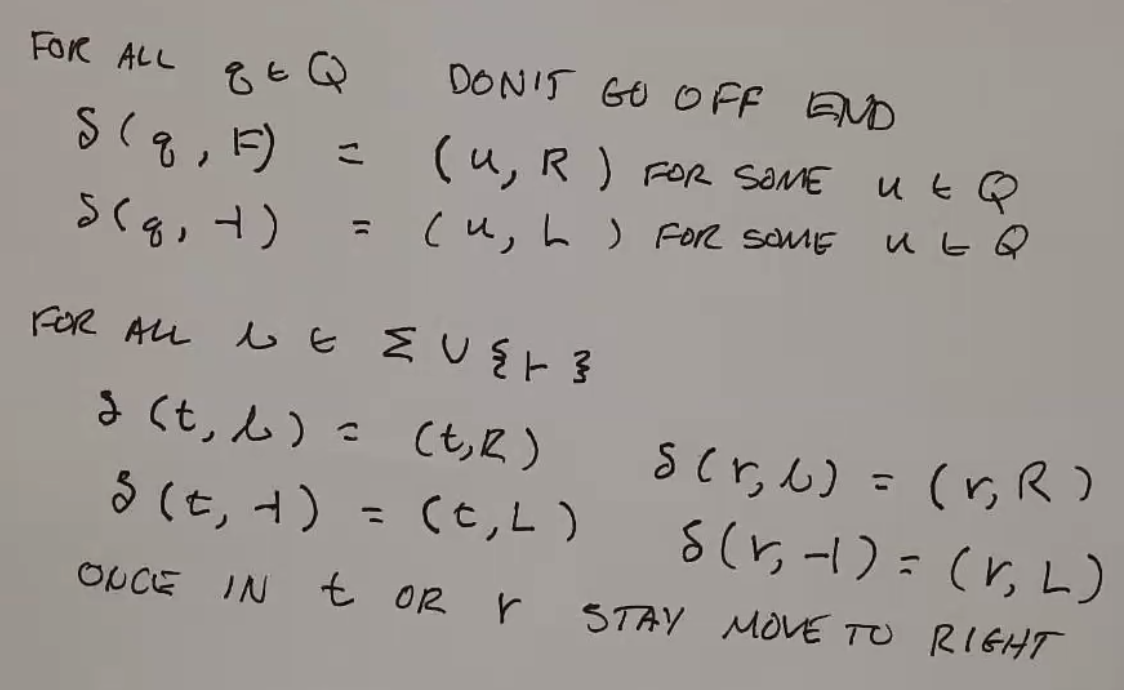 FOR ALL q ∈ Q DON'T GO OFF END
δ(q, ⊢) = (u, R) FOR SOME u ∈ Q
δ(q, ⊣) = (u, L) FOR SOME u ∈ Q
FOR ALL b ∈ Σ ∪ {⊢}
δ(t, b) = (t, R) δ(r, b) = (r, R)
δ(t, ⊣) = (t, L) δ(r, ⊣) = (r, L)
ONCE IN t OR r STAY MOVE TO RIGHT